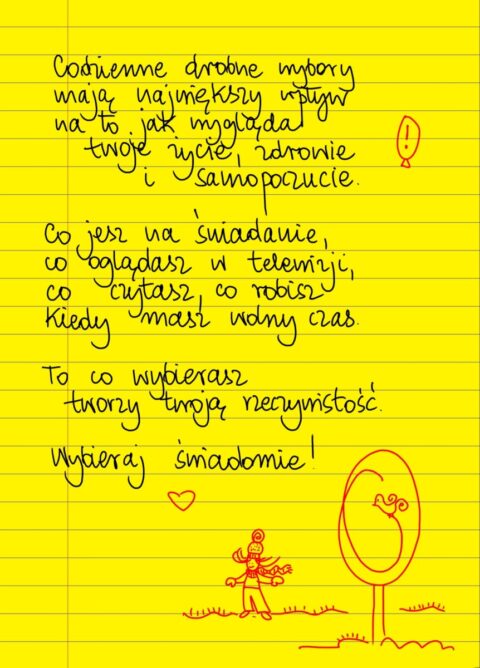 Codzienne drobne wybory
mają największy wpływ
na to jak wygląda
twoje życie, zdrowie
i samopoczucie.
!
Co jesz na śniadanie,
co oglądasz w telewizji,
co czytasz, co robisz
kiedy masz wolny czas.
To co wybierasz
tworzy twoją rzeczywistość.
Wybieraj świadomie!